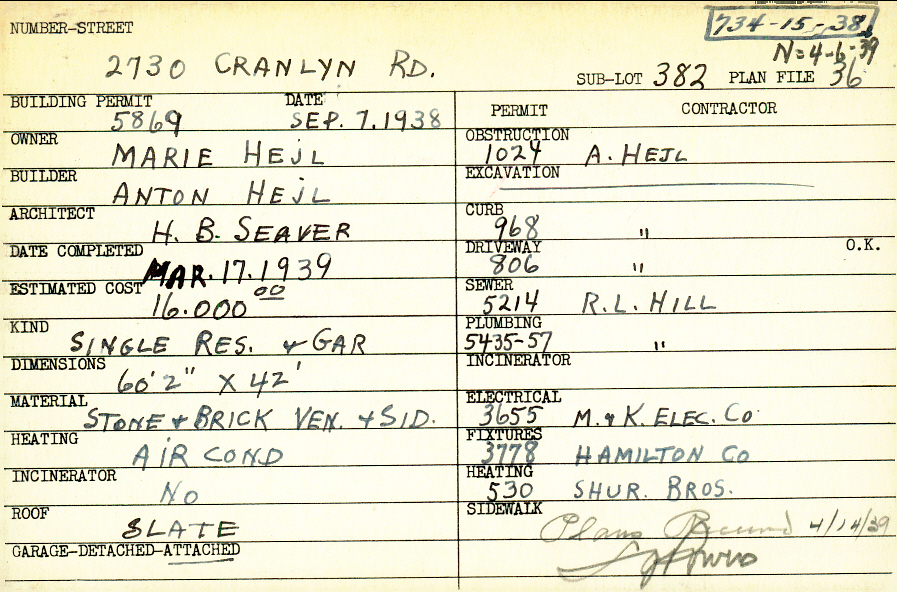 NUMBER-STREET
734-15-38
N=4-6-39
2730 CRANLYN RD.
SUB-LOT 382 PLAN FILE 36
BUILDING PERMIT DATE
5869 SEP. 7, 1938
OWNER
MARIE HEJL
BUILDER
ANTON HEJL
ARCHITECT
H. B. SEAVER
DATE COMPLETED
MAR. 17. 1939
ESTIMATED COST
16.000 00
KIND
SINGLE RES. & GAR
DIMENSIONS
60'2" X 42'
MATERIAL
STONE & BRICK VEN. & SID.
HEATING
AIR COND
INCINERATOR
NO
ROOF
SLATE
GARAGE-DETACHED-ATTACHED
PERMIT CONTRACTOR
OBSTRUCTION
1024 A. HEJL
EXCAVATION
CURB
968 "
DRIVEWAY O.K.
806 "
SEWER
5214 R.L. HILL
PLUMBING
5435-57 "
INCINERATOR
ELECTRICAL
3655 M. & K. ELEC. CO.
FIXTURES
3778 HAMILTON CO
HEATING
530 SHUR. BROS.
SIDEWALK
Plans 4/14/39